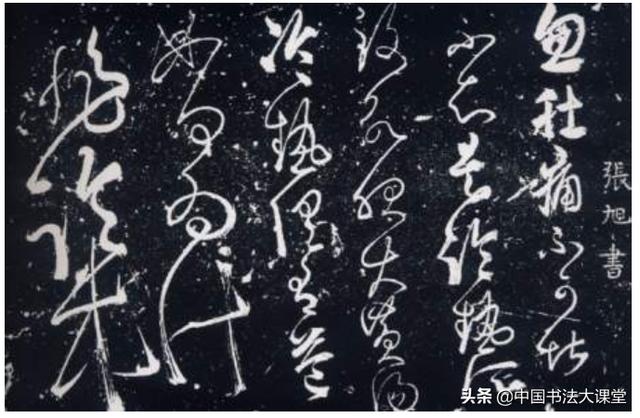 張旭書
忽肚痛不可堪
不知是冷熱所
致欲服大黃湯
冷熱俱有益
如何為計
非臨床
头条 @中国书法大课堂